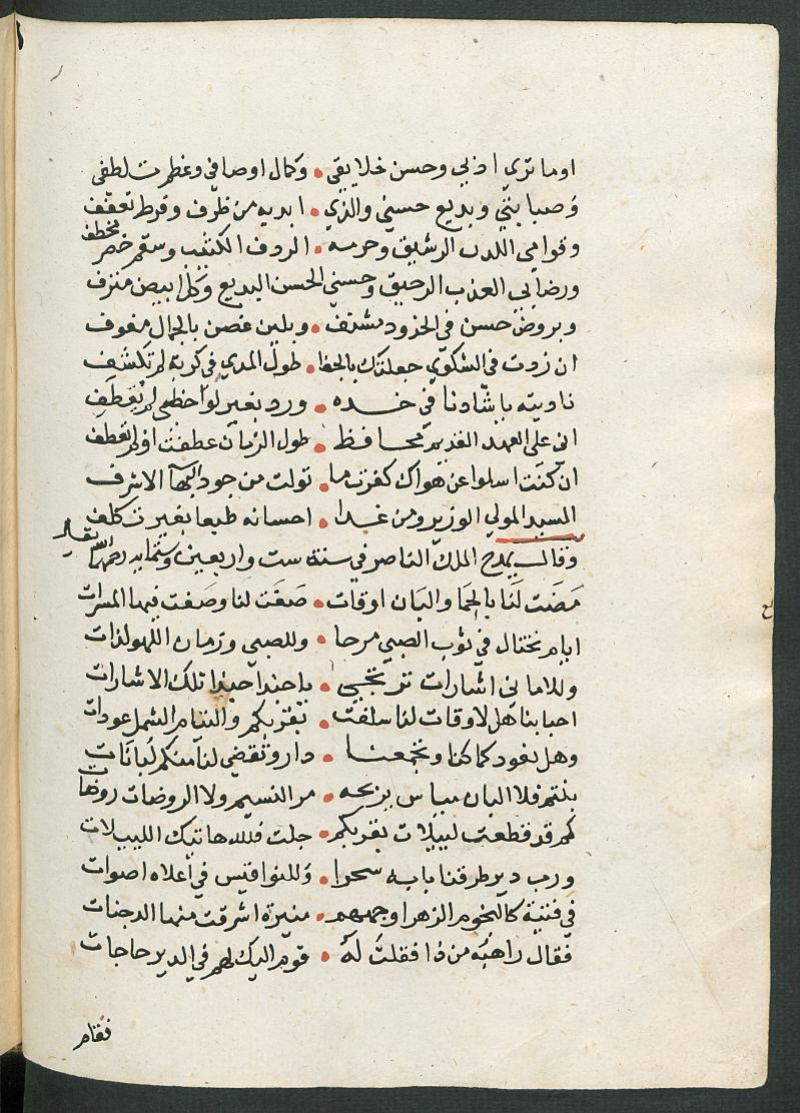 اوما تري ادبي وحسن خلايقي • وكمال اوصافي وعظمت لطفي
وصبابتي وبديع حسني والذي • ابديه من ظرف وفرط تعفف
وقوامي اللدن الرشيق وحرمه • الردف الكثيب وسقم خصر مخطف
ورضابي العذب الرحيق وحسني الحسن البديع وكل ابيض منزف
وبروض حسن في الخدود مشنف • وبلين غصن بالجمال مفوف
ان زدت في الشكوي جعلتك بالجفا • طول المدي في كربة لم تكشف
ناديته يا شادنا في خده • ورد بغير لواحظي لم يقطف
اني علي العهد القديم محافظ • طول الزمان عطفت او لم تعطف
ان كنت اسلوا عن هواك كفرت ما • تولت من جود البها الاشرف
السيد المولي الوزير ومن غدا • احسانه طبعا بغير تكلف
وقال يمدح الملك الناصر في سنة ست واربعين وستمايه رحمه الله تعالي
مضت لنا بالحما والبان اوقات • صفت لنا وصفت فيها المسرات
ايام نختال في ثوب الصبي مرحا • وللصبي وزمان اللهو لذات
وللاماني اشارات ترنحي • يا حبذا حبذا تلك الاشارات
احبابنا هل لاوقات لنا سلفت • بقربكم والتيام الشمل عودات
وهل نعود كما كنا وتجمعنا • دار وتقضي لنا منكم لبانات
بنتم فلا البان مياس بزنحه • مر النسيم ولا الروضات روضات
كم قد قطعت لييلات بقربكم • جلت فلله هاتيك اللييلات
ورب دير طرقنا بابه سحرا • وللنواقيس في أعلاه اصوات
في فتية كالنجوم الزهر اوجههم • منيرة اشرقت منها الدجنات
فقال راهبه من ذا فقلت له • قوم اليك لهم في الدير حاجات
فقام